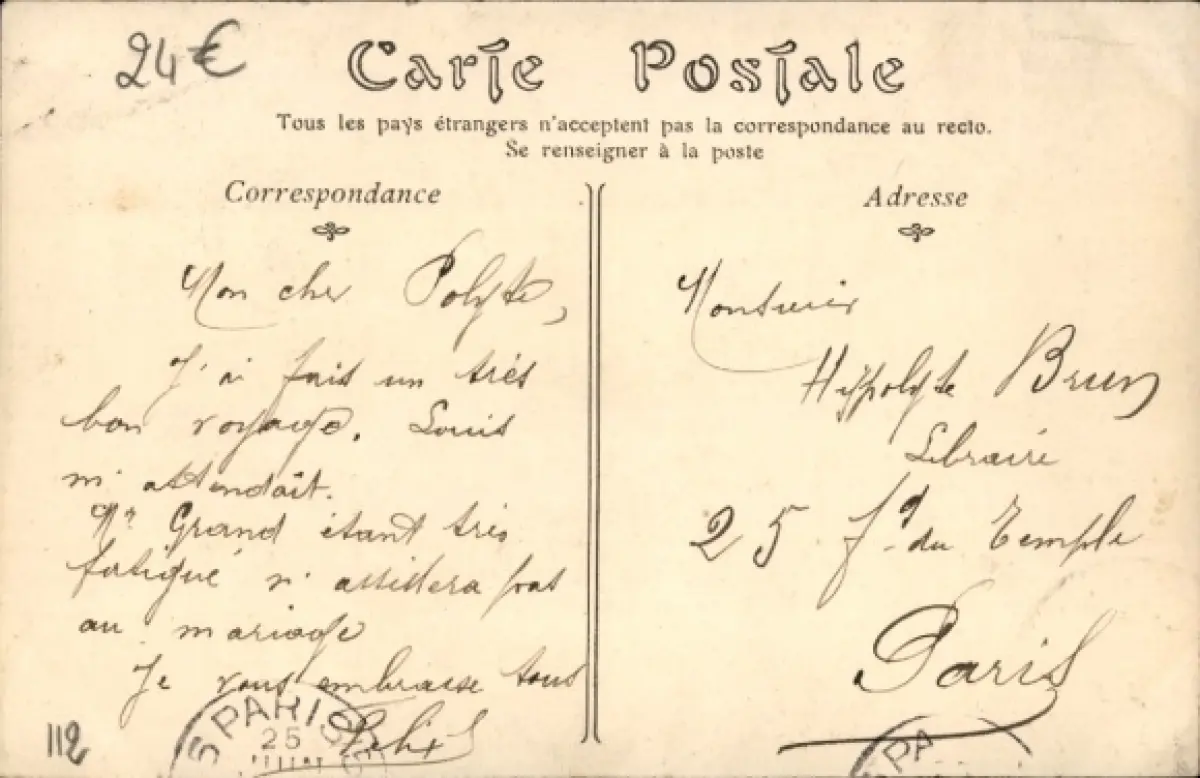 24€
Carte Postale
Tous les pays étrangers n'acceptent pas la correspondance au recto.
Se renseigner à la poste
Correspondance
Mon cher Polyte,
J'ai fait un très
bon voyage. Louis
m'attendait.
Mr Grand étant très
fatigué n'assistera pas
au mariage
Je vous embrasse tous
Felix
PARIS
25
112
Adresse
Monsieur
Hippolyte Brun
Libraire
25 fg du Temple
Paris
PA